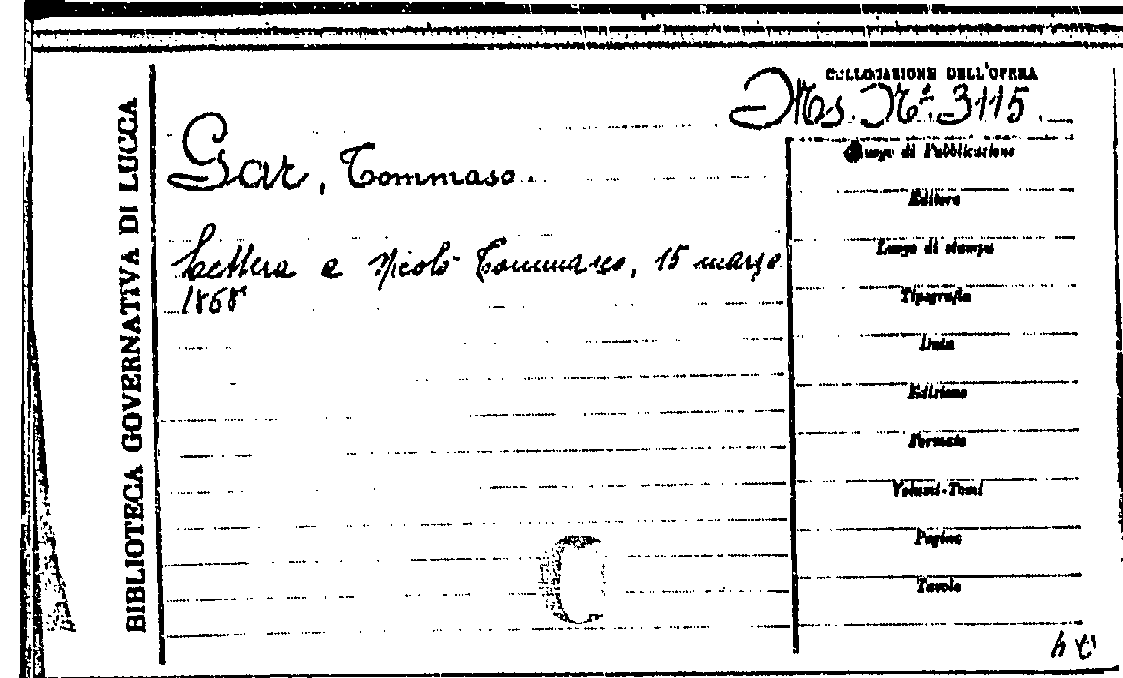 COLLOCAZIONE DELL'OPERA
Ms. Nº 3115
BIBLIOTECA GOVERNATIVA DI LUCCA
Gar, Tommaso
Lettera a Nicolò Tommaseo, 15 marzo
1868
Luogo di Pubblicazione
Editore
Luogo di stampa
Tipografia
Data
Edizione
Formato
Volumi-Tomi
Pagine
Tavole